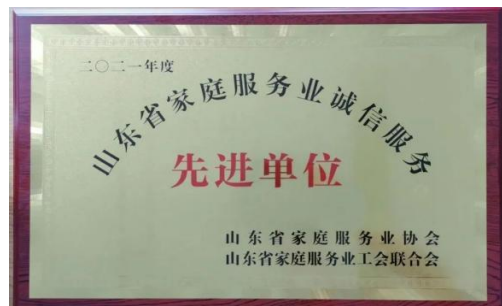 二〇二一年度
山东省家庭服务业诚信服务
先进单位
山东省家庭服务业协会
山东省家庭服务业工会联合会